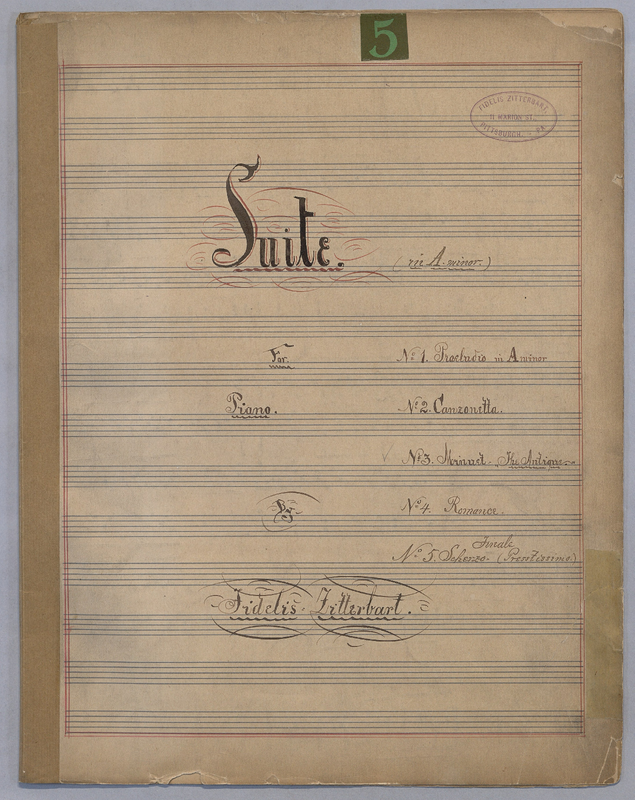 5
FIDELIS ZITTERBART,
11 MARION ST.
PITTSBURGH, PA.
Suite.
(in A minor.)
For
Nº 1. Praeludio in A minor
Piano.
Nº 2. Canzonetta.
Nº 3. Minuet
By
Nº 4. Romance.
Finale
Nº 5. Scherzo. (Prestissimo.)
Fidelis Zitterbart.